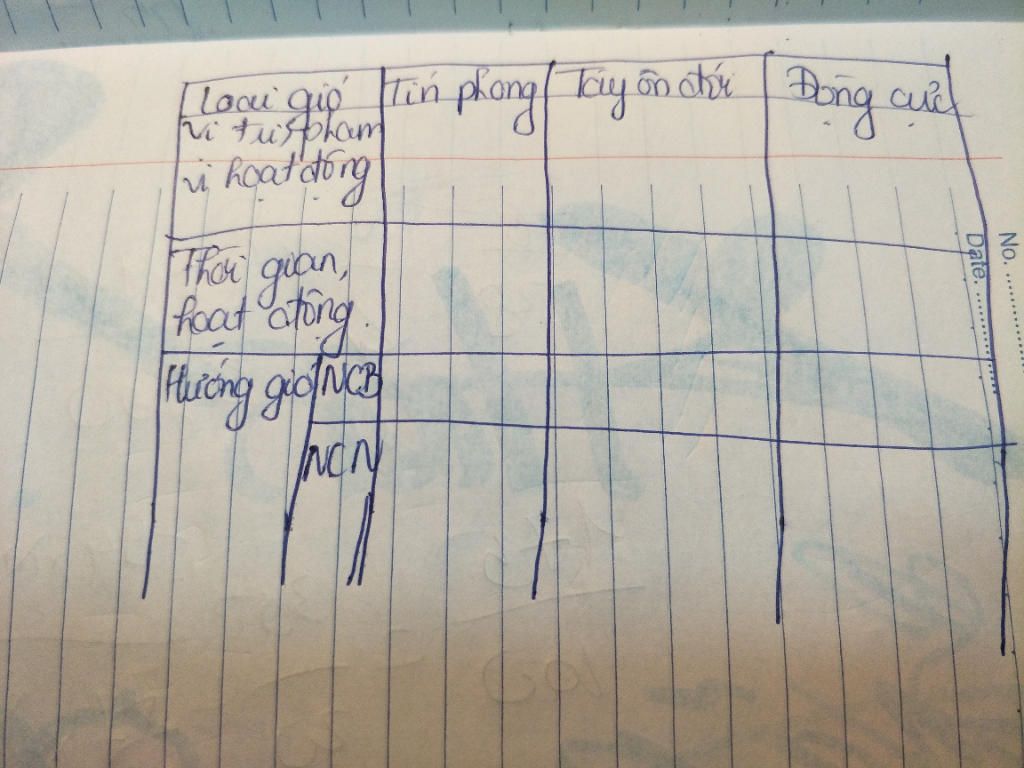 Loại gió
Tín phong
Tây ôn đới
Đông cực
Vị trí, phạm
vi hoạt động
Thời gian,
hoạt động.
Hướng gió
NCB
NCN
No. ..........
Date. ..................